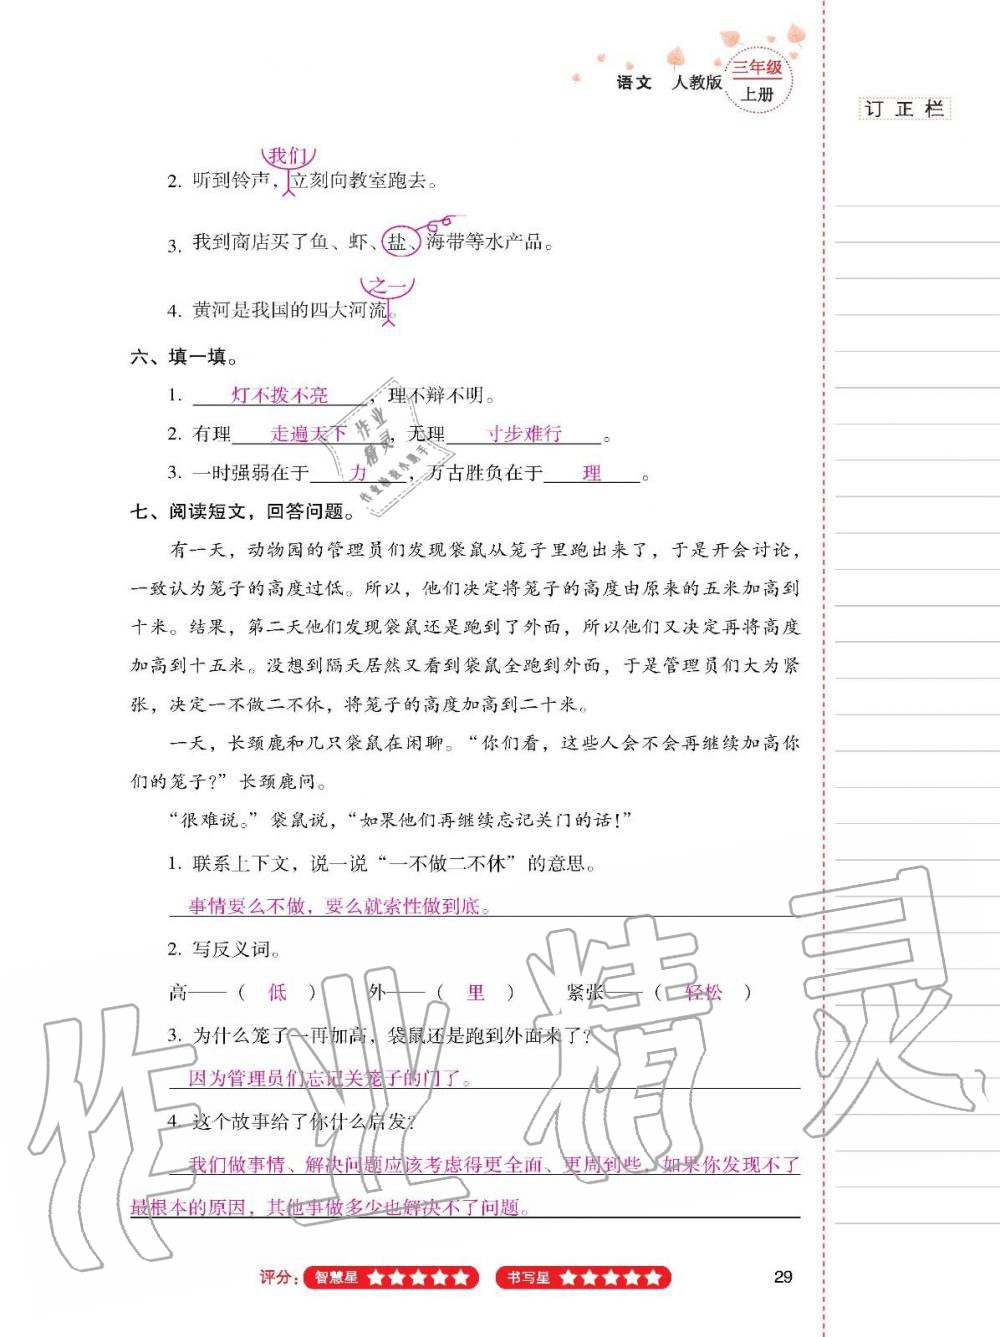 语文 人教版 三年级
上册
订正栏
我们
2. 听到铃声，立刻向教室跑去。
3. 我到商店买了鱼、虾、盐、海带等水产品。
之一
4. 黄河是我国的四大河流。
六、填一填。
1. 灯不拨不亮，理不辩不明。
2. 有理 走遍天下，无理 寸步难行。
3. 一时强弱在于 力，万古胜负在于 理。
七、阅读短文，回答问题。
有一天，动物园的管理员们发现袋鼠从笼子里跑出来了，于是开会讨论，
一致认为笼子的高度过低。所以，他们决定将笼子的高度由原来的五米加高到
十米。结果，第二天他们发现袋鼠还是跑到了外面，所以他们又决定再将高度
加高到十五米。没想到隔天居然又看到袋鼠全跑到外面，于是管理员们大为紧
张，决定一不做二不休，将笼子的高度加高到二十米。
一天，长颈鹿和几只袋鼠在闲聊。“你们看，这些人会不会再继续加高你
们的笼子?”长颈鹿问。
“很难说。”袋鼠说，“如果他们再继续忘记关门的话!”
1. 联系上下文，说一说“一不做二不休”的意思。
事情要么不做，要么就索性做到底。
2. 写反义词。
高——（ 低 ） 外——（ 里 ） 紧张——（ 轻松 ）
3. 为什么笼子一再加高，袋鼠还是跑到外面来了?
因为管理员们忘记关笼子的门了。
4. 这个故事给了你什么启发?
我们做事情、解决问题应该考虑得更全面、更周到些，如果你发现不了
最根本的原因，其他事做多少也解决不了问题。
评分: 智慧星 ★★★★★ 书写星 ★★★★★
29
作业精灵
作业精灵
作业检查小助手